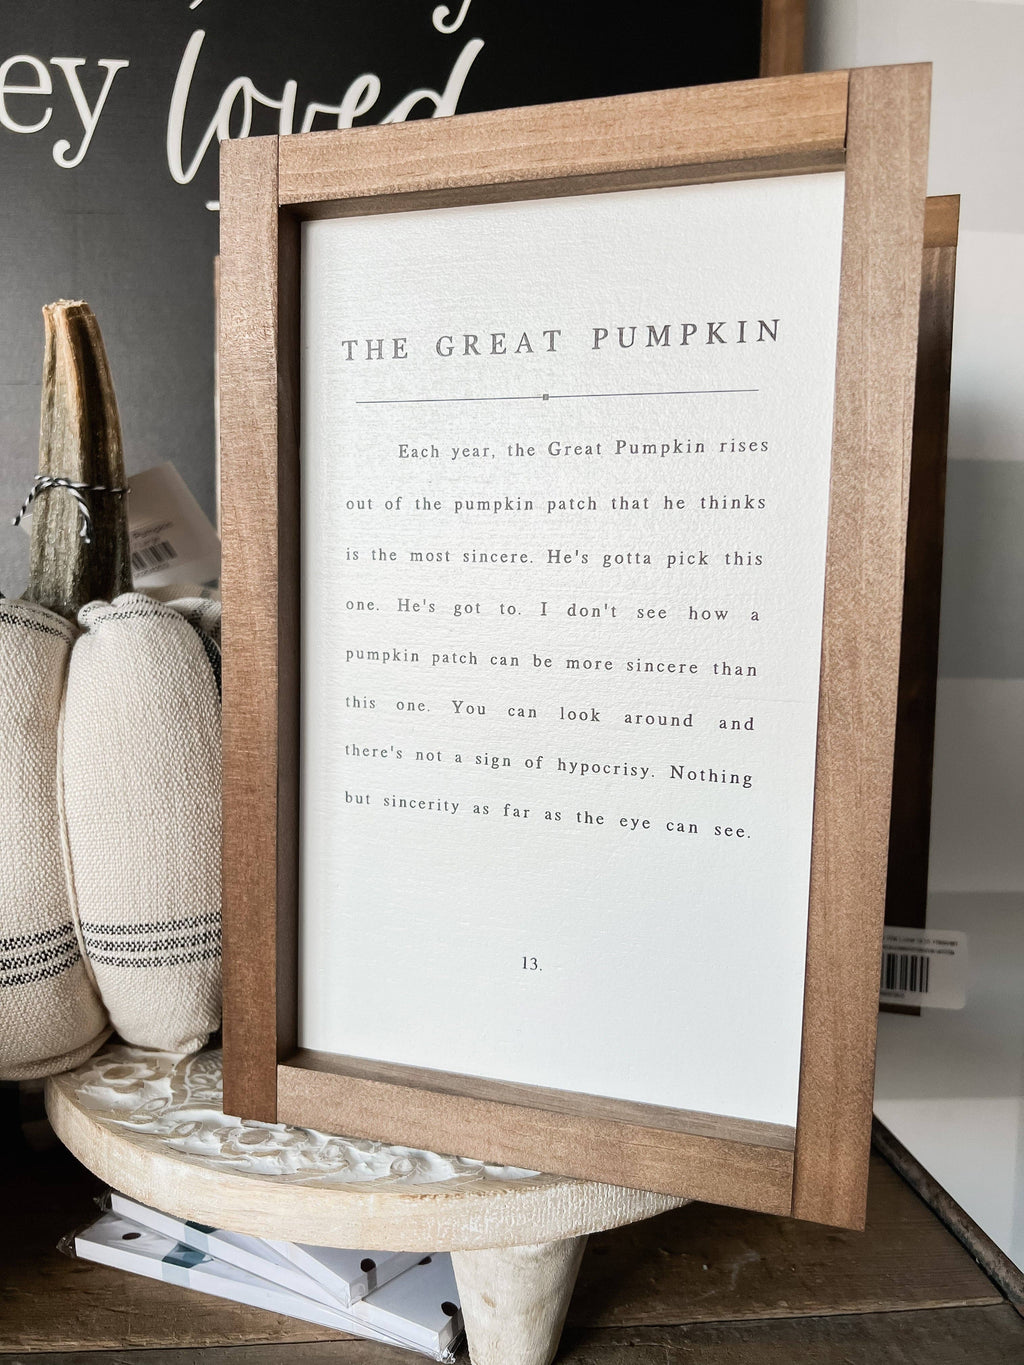 ey loved
THE GREAT PUMPKIN
Each year, the Great Pumpkin rises
out of the pumpkin patch that he thinks
is the most sincere. He's gotta pick this
one. He's got to. I don't see how a
pumpkin patch can be more sincere than
this one. You can look around and
there's not a sign of hypocrisy. Nothing
but sincerity as far as the eye can see.
13.